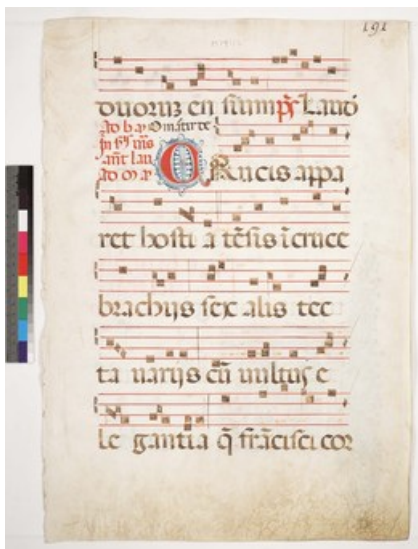 191
duorum en sumim ps Laud
ad b ay O martir te
in
ant lau
ad
Crucis appa
ret hosti a tēsis ī cruce
brachijs sex alis tec
ta uarijs cū uultus e
le gantia q̄ frācisci cor